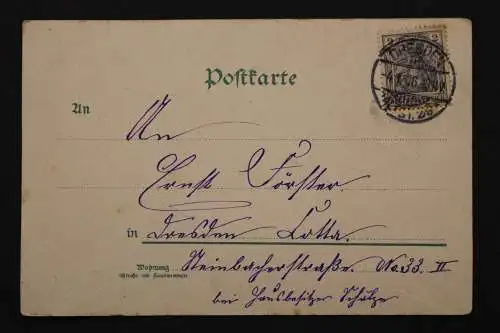 DRESDEN
Postkarte
An
An
Ernst Förster.
in Dresden Cotta.
Wohnung
Steinbacherstraße. No. 33. II
(Straße und Hausnummer)
bei Hausbesitzer Schulze